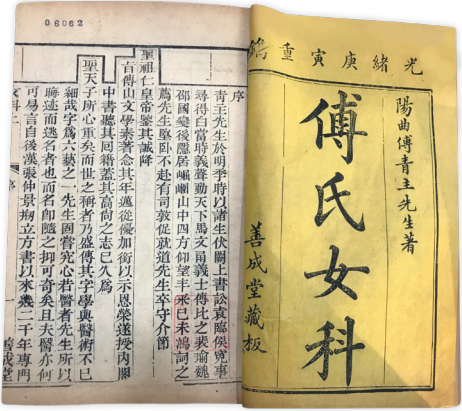 光緒庚寅重鐫
陽曲傅青主先生著
傅氏女科
善成堂藏板
序
青主先生於明季時以諸生伏闕上書訟袁臨侯冤事
尋得白當時義聲動天下馬文甬義士傳比之裴瑜魏
邵國變後隱居崛山中四方仰望丰采己未鴻詞之
薦先生堅臥不赴有司敦促就道先生卒守介節
聖祖仁皇帝鑒其誠降
旨傅山文學素著念其年邁從優加銜以示恩榮遂授內閣
中書聽其回籍蓋其高尚之志已久爲
聖天子所心重矣而世之稱者乃盛傳其字學與醫術不已
細哉字爲六藝之一先生固嘗究心若醫者先生所以
晦迹而逃名者也而名卽隨之抑可奇矣且夫醫亦何
可易言自後漢張仲景剏立方書以來幾二千年專門
女科 序 一 善成堂
06062